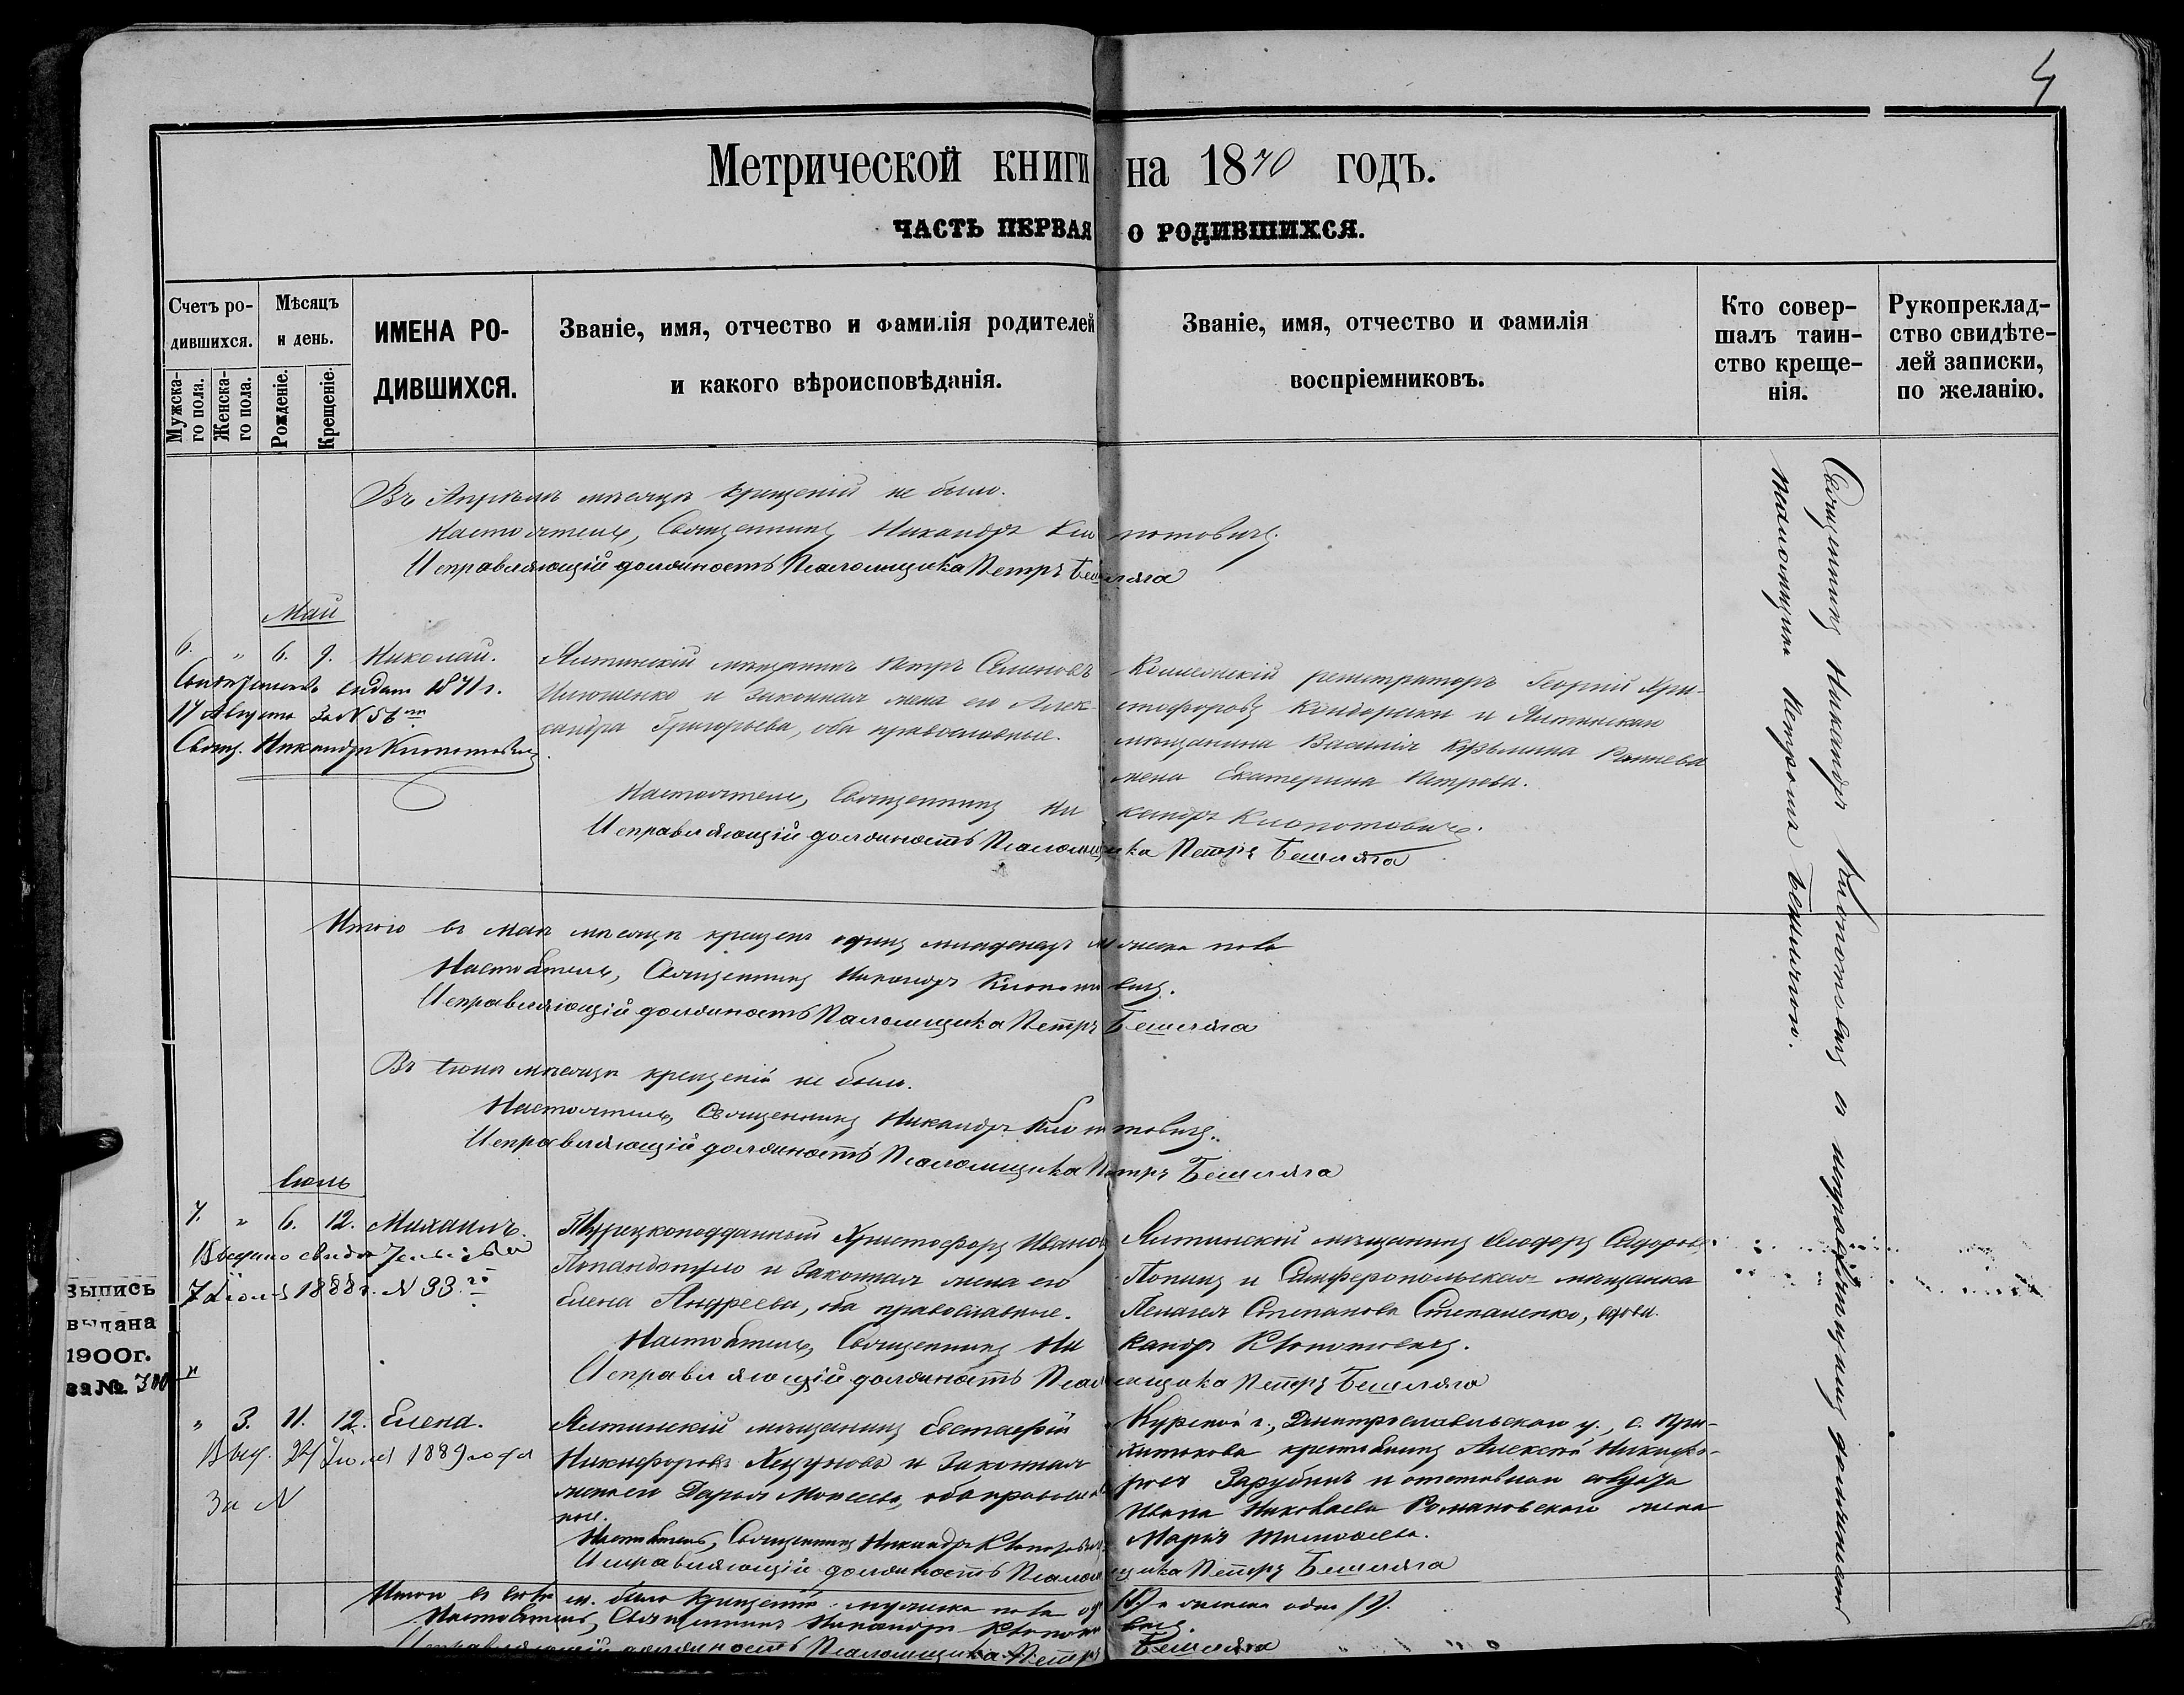 4
Метрической книги на 1870 годъ.
ЧАСТЬ ПЕРВАЯ О РОДИВШИХСЯ.
Счетъ ро-
дившихся.
Мужска-
го пола.
Женска-
го пола.
Мѣсяцъ
и день.
Рожденіе.
Крещеніе.
ИМЕНА РО-
ДИВШИХСЯ.
Званіе, имя, отчество и фамилія родителей
и какого вѣроисповѣданія.
Званіе, имя, отчество и фамилія
воспріемниковъ.
Кто совер-
шалъ таин-
ство креще-
нія.
Рукопреклад-
ство свидѣте-
лей записки,
по желанію.
Въ Апрѣлѣ мѣсяцѣ крещеній не было.
Настоятель, Священникъ Никандръ Клопотовичъ.
Исправляющій должность Псаломщика Петръ Бешляга
Май
6. " 6. 9. Николай.
Свидѣтельство выдано 1871 г.
17 Августа за N 56
Свящ. Никандръ Клопотовичъ
Ялтинскій мѣщанинъ Петръ Семеновъ
Илюшенко и законная жена его Алек-
сандра Григорьева, оба православные.
Коллежскій регистраторъ Георгій Хри-
стофоровъ и Ялтинскаго
мѣщанина Василія Кузьмина
жена Екатерина Петрова.
Настоятель, Священникъ Никандръ Клопотовичъ.
Исправляющій должность Псаломщика Петръ Бешляга
Итого въ Маѣ мѣсяцѣ крещенъ одинъ младенецъ мужска пола
Настоятель, Священникъ Никандръ Клопотовичъ.
Исправляющій должность Псаломщика Петръ Бешляга
Въ Іюнѣ мѣсяцѣ крещеній не было.
Настоятель, Священникъ Никандръ Клопотовичъ.
Исправляющій должность Псаломщика Петръ Бешляга
Іюль
7. " 6. 12. Михаилъ.
Выдано свидѣтельство
7 Іюля 1888 г. N 33
Выпись
выдана
1900г.
за №
Турецкоподданный Христофоръ Ивановъ
и законная жена его
Елена Андреева, оба православные.
Ялтинскій мѣщанинъ Ѳеодоръ Сидоровъ
Попинъ и Симферопольская мѣщанка
Пелагея Степанова Степаненко, вдова.
Настоятель, Священникъ Никандръ Клопотовичъ.
Исправляющій должность Псаломщика Петръ Бешляга
" 3. 11. 12. Елена.
Выд. 24 Іюля 1889 года
За N
Ялтинскій мѣщанинъ Евстафій
Никифоровъ и законная
жена его Дарья Моисеева, оба православ-
ные.
Курской г., Дмитрославльскаго у., с.
крестьянинъ Алексѣй Никифо-
ровъ Зарубинъ и отставнаго
Ивана Николаева Романовскаго жена
Марія Тимоѳеева.
Настоятель, Священникъ Никандръ Клопотовичъ
Исправляющій должность Псаломщика Петръ Бешляга
Итого въ Іюлѣ м. было крещеній: мужска пола (1) и женска одна (1).
Настоятель, Священникъ Никандръ Клопотовичъ.
Исправляющій должность Псаломщика Петръ Бешляга
Священникъ Никандръ Клопотовичъ съ исправляющимъ должность
псаломщика Петромъ Бешлягою.